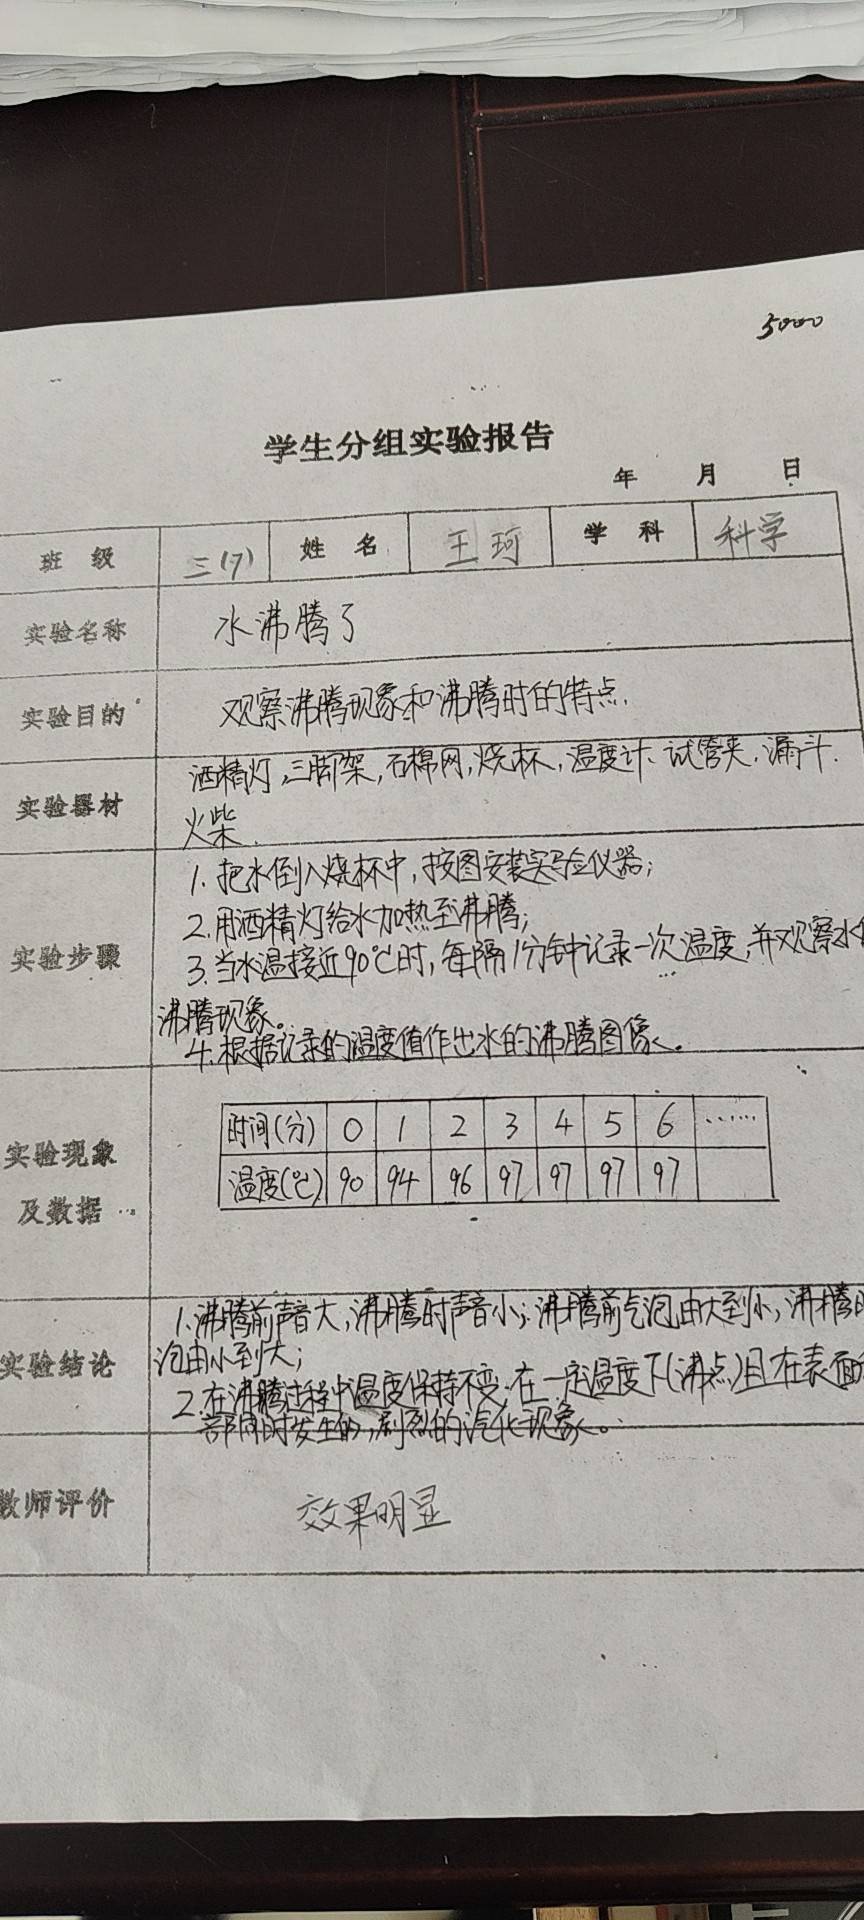 5000
学生分组实验报告
年 月 日
班 级 三(7) 姓 名 王珂 学 科 科学
实验名称 水沸腾了
实验目的 观察沸腾现象和沸腾时的特点.
实验器材 酒精灯,三脚架,石棉网,烧杯,温度计、试管夹,漏斗.
火柴.
实验步骤
1.把水倒入烧杯中,按图安装实验仪器;
2.用酒精灯给水加热至沸腾;
3.当水温接近90℃时,每隔1分钟记录一次温度,并观察水
沸腾现象。
4.根据记录的温度值作出水的沸腾图像.
实验现象
及数据
时间(分) 0 1 2 3 4 5 6 ……
温度(℃) 90 94 96 97 97 97 97
实验结论
1.沸腾前声音大,沸腾时声音小;沸腾前气泡由大到小,沸腾
泡由小到大;
2.在沸腾过程中温度保持不变;在一定温度下(沸点)且在表面
部同时发生的,剧烈的汽化现象。
教师评价 效果明显